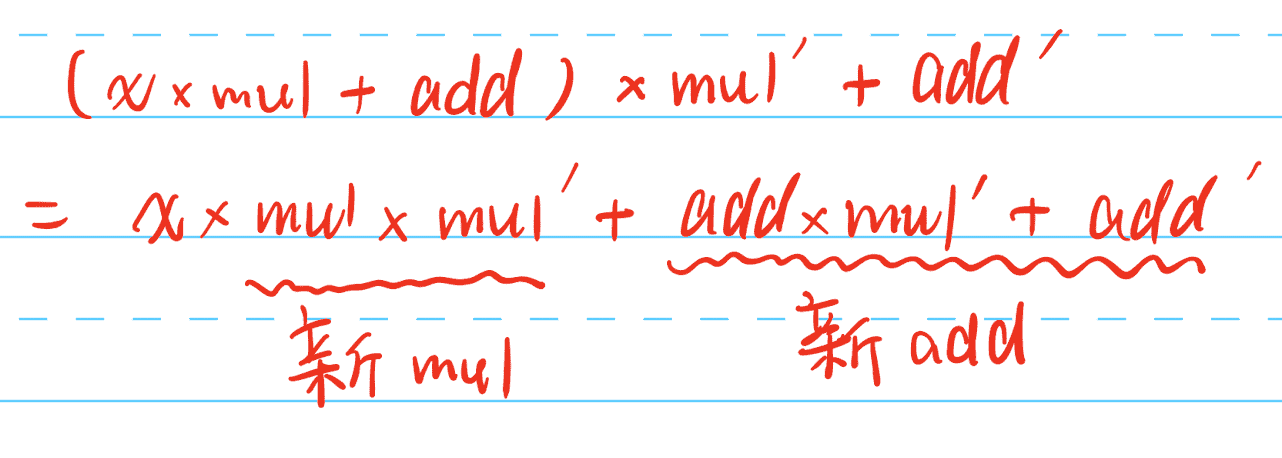 (x × mul + add) × mul′ + add′
= x × mul × mul′ + add × mul′ + add′
新 mul 新 add